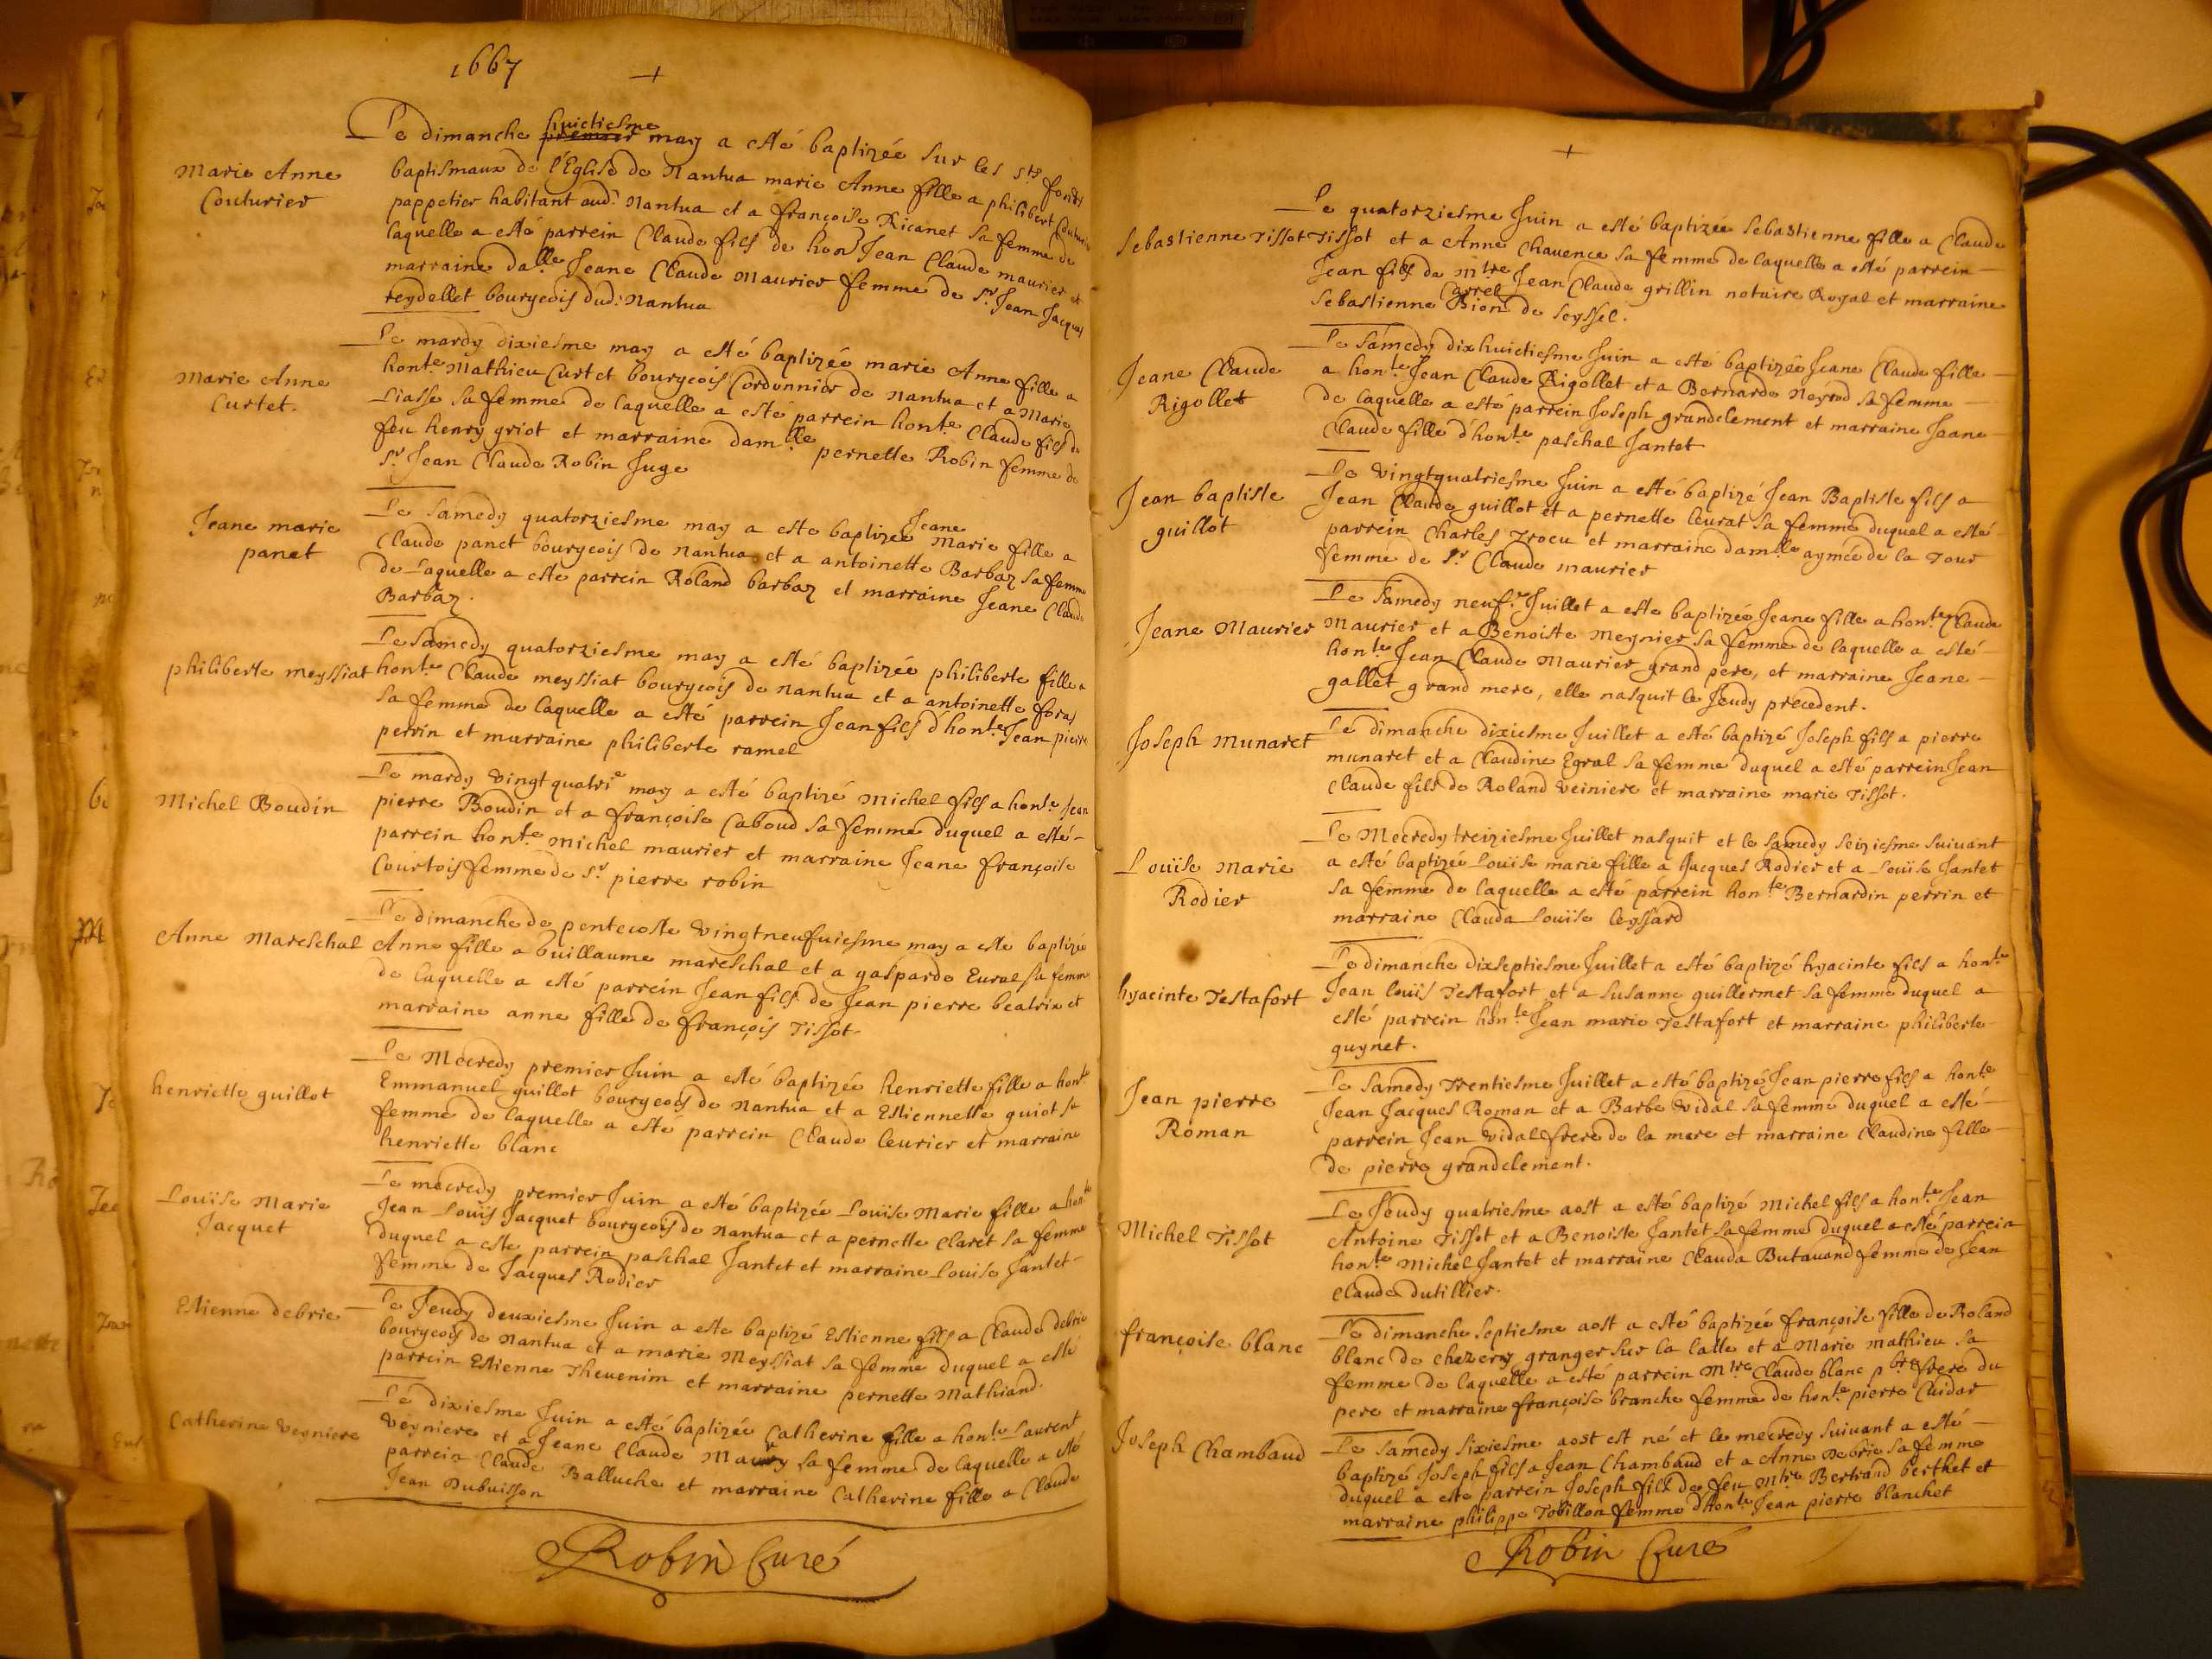 1667
+
Le dimanche huictiesme premier may a esté baptizée sur les sts fonds
Marie Anne
Couturier
baptismaux de l'Eglise de Nantua marie Anne fille a philibert Couturier
pappetier habitant aud: Nantua et a françoise Ricanet sa femme de
laquelle a esté parrein Claude fils de hon Jean Claude maurier et
marraine dalle Jeane Claude Maurier femme de Sr Jean Jacques
reydellet bourgeois dud: Nantua
Le mardy dixiesme may a esté baptizée marie Anne fille a
Marie Anne
Curtet.
honte Mathieu Curtet bourgeois Cordonnier de Nantua et a Marie
Liasse sa femme de laquelle a esté parrein honte Claude fils de
feu henry griot et marraine damlle pernette Robin femme de
Sr Jean Claude Robin Juge
Jeane marie
panet
Le Samedy quatorziesme may a esté baptizée Jeane Marie fille a
Claude panet bourgeois de Nantua et a antoinette Barbaz sa femme
de Laquelle a este parrein Roland barbaz et marraine Jeane Claude
Barbaz.
Le Samedy quatorziesme may a esté baptizée philiberte fille a
philiberte meyssiat
honte Claude meyssiat bourgeois de nantua et a antoinette foras
sa femme de laquelle a esté parrein Jean fils d'honte Jean pierre
perrin et marraine philiberte ramel
Le mardy vingt quatrie may a esté baptizé Michel fils a honte Jean
Michel Boudin
pierre Boudin et a françoise Caboud sa femme duquel a esté-
parrein honte michel maurier et marraine Jeane françoise
Courtois femme de Sr pierre robin
Le dimanche de pentecoste vingtneufuiesme may a este baptizée
Anne Mareschal
Anne fille a Guillaume mareschal et a gasparde Eural sa femme
de laquelle a esté parrein Jean fils de Jean pierre beatrix et
marraine anne fille de françois Tissot.
Le Mecredy premier Juin a esté baptizée henriette fille a honte
henriette guillot
Emmanuel guillot bourgeois de Nantua et a Estiennette guiot sa
femme de laquelle a este parrein Claude leurier et marraine
henriette blanc
Le mecredy premier Juin a esté baptizée Louïse Marie fille a honte
Louïse Marie
Jacquet
Jean Louïs Jacquet bourgeois de Nantua et a pernette Claret sa femme
duquel a este parrein paschal Jantet et marraine Louïse Jantet-
femme de Jacques Rodier
Estienne debrie
Le Jeudy deuxiesme Juin a este baptizé Estienne fils a Claude debrie
bourgeois de Nantua et a marie Meyssiat sa femme duquel a esté
parrein Estienne Thevenim et marraine pernette Mathiand.
Le dixiesme Juin a esté baptizée Catherine fille a honte Laurent
Catherine veyniere
veyniere et a Jeane Claude Maury sa femme de laquelle a esté
parrein Claude Balluche et marraine Catherine fille a Claude
Jean Dubuisson
Robin Curé
+
Le quatorziesme Juin a esté baptizée Sebastienne fille a Claude
Sebastienne Tissot
Tissot et a Anne Chauence sa femme de laquelle a esté parrein-
Jean fils de Mtre Jean Claude grillin notaire Royal et marraine
Sebastienne Carrel Bion de Seyssel.
Le Samedy dixhuictiesme Juin a esté baptizée Jeane Claude fille-
Jeane Claude
Rigollet
a honte Jean Claude Rigollet et a Bernarde Neyrod sa femme-
de laquelle a esté parrein Joseph grandclement et marraine Jeane-
Claude fille d'honte paschal Jantet
Le vingtquatriesme Juin a esté baptizé Jean Baptiste fils a
Jean baptiste
guillot
Jean Claude guillot et a pernette leurat sa femme duquel a esté-
parrein Charles Trocu et marraine damlle aymée de la Tour
femme de Sr Claude maurier
Le Samedy neufe Juillet a esté baptizée Jeane fille a honte Claude
Jeane Maurier
Maurier et a Benoiste Meynier sa femme de laquelle a esté-
honte Jean Claude Maurier grand pere, et marraine Jeane-
gallet grand mere, elle nasquit le Jeudy precedent.
Le dimanche dixiesme Juillet a esté baptizé Joseph fils a pierre
Joseph Munaret
munaret et a Claudine Egral sa femme duquel a esté parrein Jean
Claude fils de Roland veiniere et marraine marie Tissot.
Le Mecredy treiziesme Juillet nasquit et le samedy seiziesme suiuant
Louïse Marie
Rodier
a esté baptizée Louïse marie fille a Jacques Rodier et a Louïse Jantet
sa femme de laquelle a esté parrein honte Bernardin perrin et
marraine Clauda Louïse leyssard
Le dimanche dixseptiesme Juillet a esté baptizé hyacinte fils a honte
hyacinte Testafort
Jean louïs Testafort et a Susanne guillermet sa femme duquel a
esté parrein honte Jean marie Testafort et marraine philiberte-
guynet.
Le Samedy Trentiesme Juillet a esté baptizé Jean pierre fils a honte
Jean pierre
Roman
Jean Jacques Roman et a Barbe vidal sa femme duquel a esté-
parrein Jean vidal frere de la mere et marraine Claudine fille-
de pierre grandclement.
Le Jeudy quatriesme aost a esté baptizé Michel fils a honte Jean
Michel Tissot
Antoine Tissot et a Benoiste Jantet sa femme duquel a esté parrein
honte Michel Jantet et marraine Clauda Butauand femme de Jean
Claude dutillier.
Le dimanche septiesme aost a esté baptizée françoise fille de Roland
françoise blanc
blanc de chezery granger sur la latte et a Marie mathieu sa
femme de laquelle a esté parrein Mtre Claude blanc pbre frere du
pere et marraine françoise branche femme de honte pierre Cuidar
Joseph Chambaud
Le Samedy sixiesme aost est né et le mecredy suiuant a esté-
baptizé Joseph fils a Jean Chambaud et a Anne Debrie sa femme
duquel a este parrein Joseph fils de feu Mtre Bertrand berthet et
marraine philippe Tobillon femme d'honte Jean pierre blanchet
Robin Curé